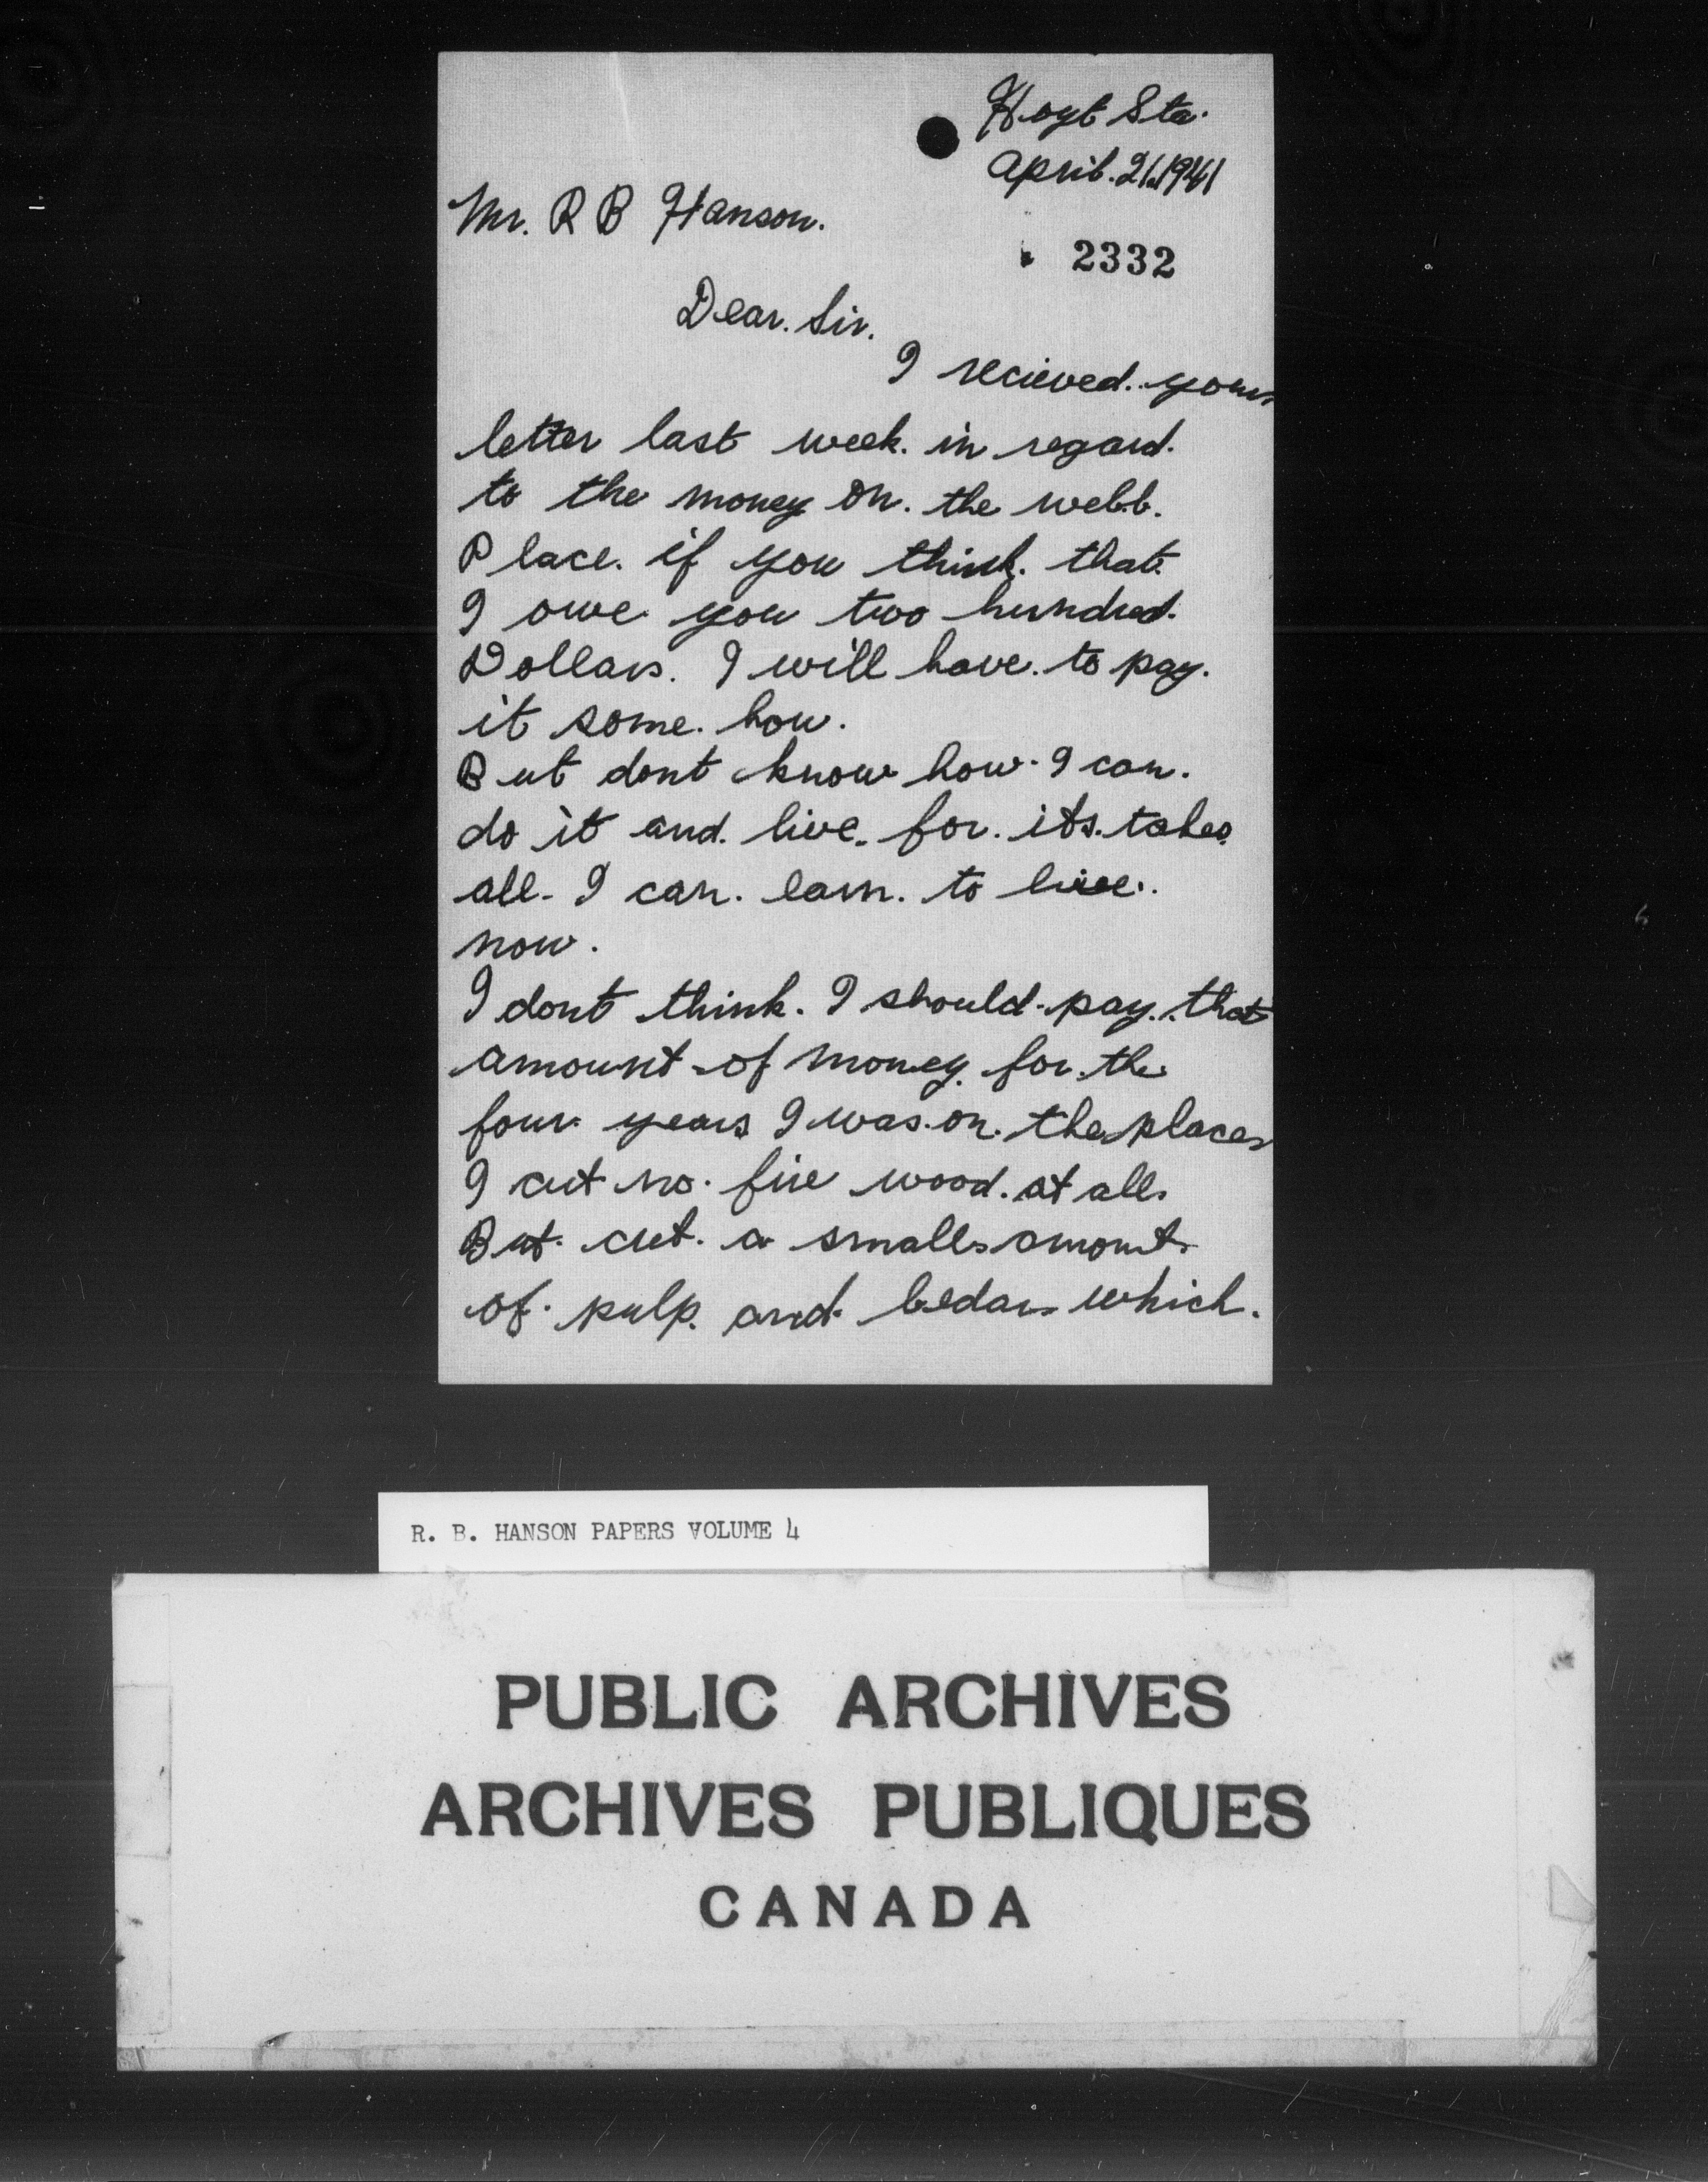 Hoyt Sta.
April. 21. 1941
Mr. R B Hanson.
2332
Dear. Sir.
I recieved. your
letter last week. in regard.
to the money on. the webb.
Place. if you think. that.
I owe you two hundred.
Dollars. I will have. to pay.
it some. how.
But dont know how. I can.
do it and. live. for. its. takes.
all. I can. earn. to live.
now.
I dont think. I should. pay. that
amount of money. for. the
four years I was. on. the place
I cut no. fire wood. at all.
But. cut. a small amount.
of. pulp. and. Cedar which.
R. B. HANSON PAPERS VOLUME 4
PUBLIC ARCHIVES
ARCHIVES PUBLIQUES
CANADA